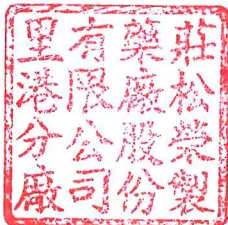 莊松榮製
藥廠股份
有限公司
里港分廠